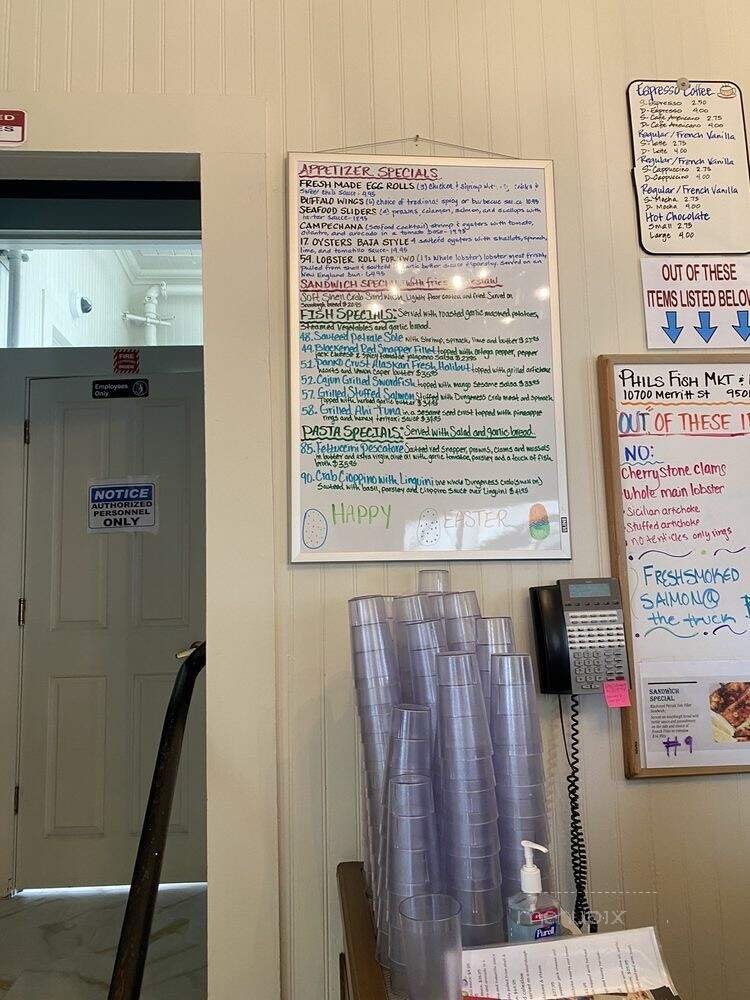 ED
FIRE
Employees
Only
NOTICE
AUTHORIZED
PERSONNEL
ONLY
APPETIZER SPECIALS
FRESH MADE EGG ROLLS (3) Chicken & Shrimp
Sweet chili sauce - 9.95
BUFFALO WINGS (6) choice of traditional spicy or barbecue sauce 10.95
SEAFOOD SLIDERS prawns, calamari, salmon, and scallops with
tartar sauce
CAMPECHANA (seafood cocktail) shrimp & oysters with tomato,
cilantro, and avocado in a tomato base
17. OYSTERS BAJA STYLE 4 sauteed oysters with shallots, spinach,
lime, and tomatillo sauce 14.95
54. LOBSTER ROLL FOR TWO (1½ whole lobster) lobster meat freshly
pulled from shell & sauteed garlic butter sauce & parsley. Served on an
New England bun
SANDWICH SPECIAL with fries
Soft Shell Crab Sandwich Lightly flour coated and fried. Served on
Sourdough bread
FISH SPECIALS: Served with roasted garlic mashed potatoes,
Steamed Vegetables and garlic bread.
48. Sauteed Petrale Sole with Shrimp, spinach, lime and butter
49. Blackened Red Snapper Fillet topped with ortega pepper, pepper
jack cheese & spicy tomatoe jalapeno salsa
51. Panko Crust Alaskan Fresh Halibut topped with grilled artichoke
hearts and lemon caper butter
52. Cajun Grilled Swordfish topped with mango sesame salsa
57. Grilled Stuffed Salmon Stuffed with Dungeness crab meat and spinach
topped with herbed garlic butter
58. Grilled Ahi Tuna in a sesame seed crust topped with pineapple
rings and honey teriyaki sauce
PASTA SPECIALS: Served with Salad and garlic bread.
85. Fettuccini Pescatore Sauteed red snapper, prawns, clams and mussels
in butter and extra virgin olive oil with garlic tomatoe, parsley and a touch of fish
broth
90. Crab Cioppino with Linguini one whole Dungeness crab
Sauteed with basil, parsley and Cioppino Sauce over linguini
HAPPY EASTER
Espresso Coffee
S-Espresso 2.50
D-Espresso 4.00
S-Cafe Americano 2.75
D-Cafe Americano 4.00
Regular/French Vanilla
S-Latte 2.75
D-Latte 4.00
Regular/French Vanilla
S-Cappuccino 2.75
D-Cappuccino 4.00
Regular/French Vanilla
S-Mocha 2.75
D-Mocha 4.00
Hot Chocolate
Small 2.75
Large 4.00
OUT OF THESE
ITEMS LISTED BELOW
PHILS FISH MKT &
10700 Merritt St 9501
OUT OF THESE I
NO:
Cherrystone clams
whole main lobster
• Sicilian artichoke
• Stuffed artichoke
• no tenticles only rings
FRESH SMOKED
SALMON @
the truck
SANDWICH
SPECIAL
#9
Purell
menupix